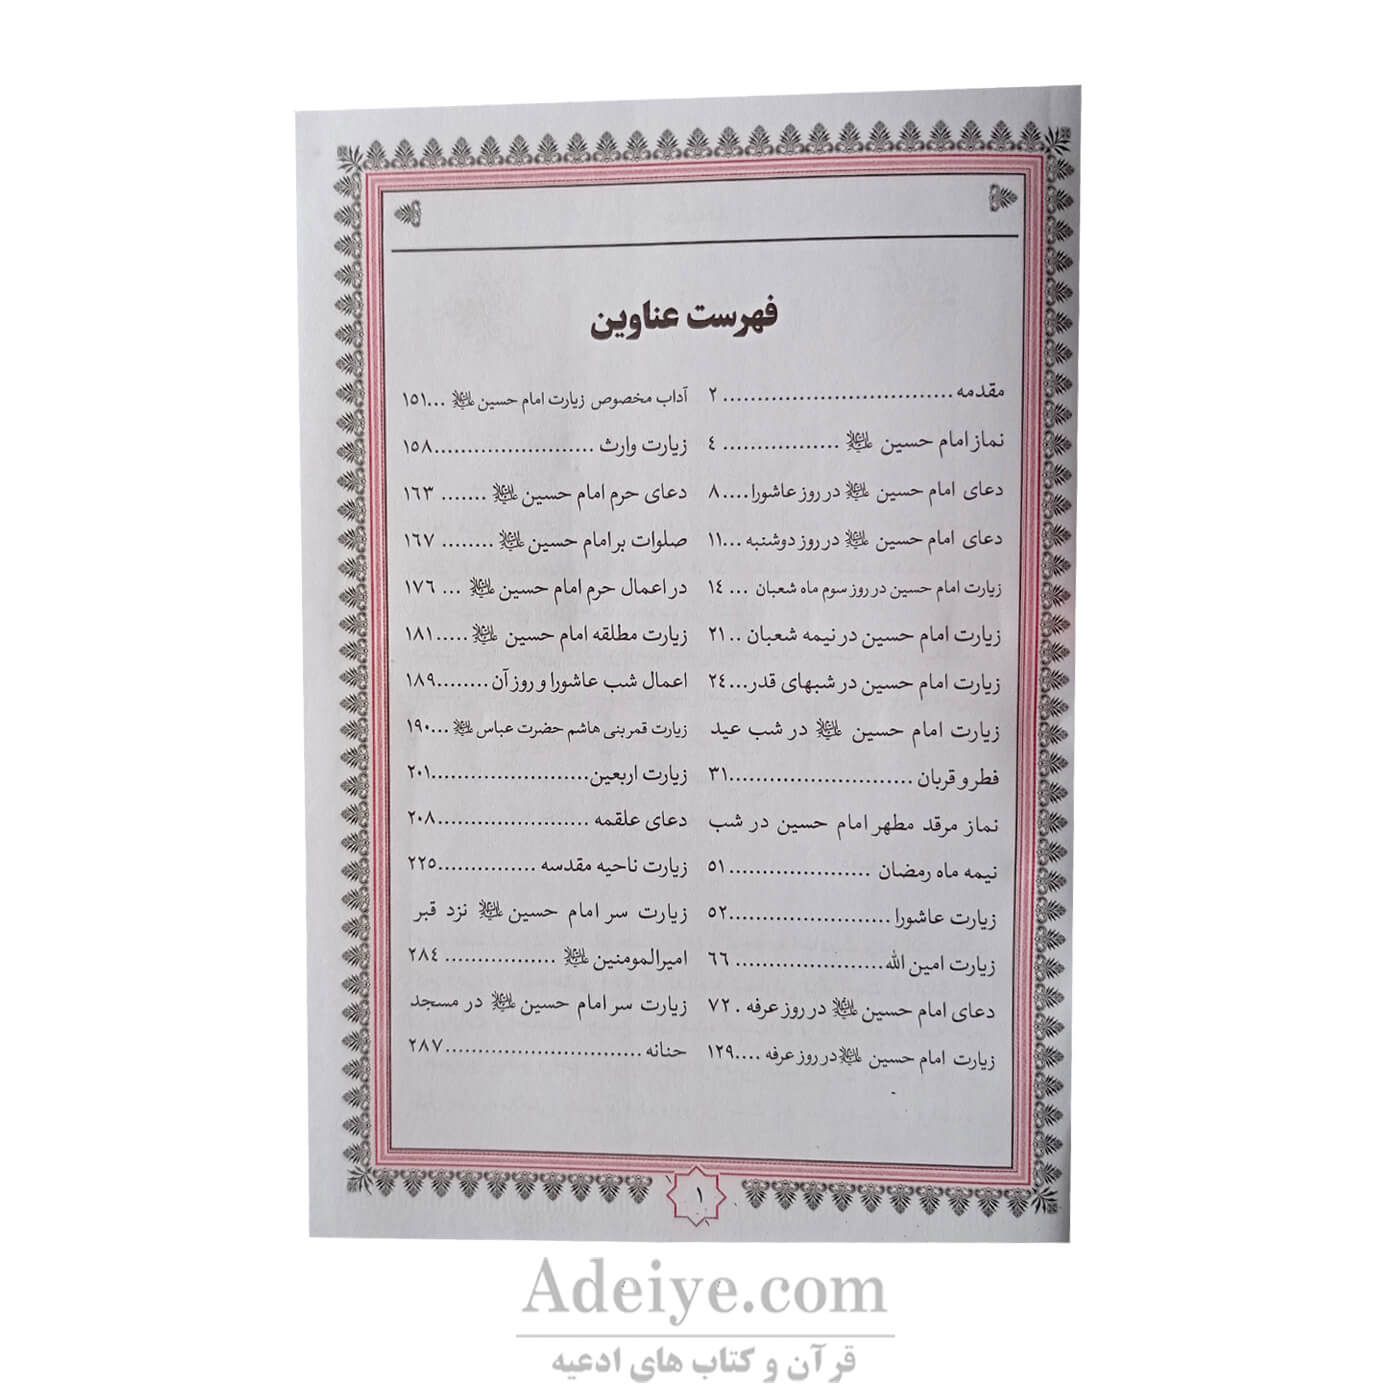 فهرست عناوین
مقدمه ................................. ٢
نماز امام حسین علیه‌السلام ................. ٤
دعای امام حسین علیه‌السلام در روز عاشورا.... ٨
دعای امام حسین علیه‌السلام در روز دوشنبه ...١١
زیارت امام حسین در روز سوم ماه شعبان ... ١٤
زیارت امام حسین در نیمه شعبان ..٢١
زیارت امام حسین در شبهای قدر...٢٤
زیارت امام حسین علیه‌السلام در شب عید
فطر و قربان ...........................٣١
نماز مرقد مطهر امام حسین در شب
نیمه ماه رمضان .....................٥١
زیارت عاشورا ........................٥٢
زیارت امین الله...................... ٦٦
دعای امام حسین علیه‌السلام در روز عرفه . ٧٢
زیارت امام حسین علیه‌السلام در روز عرفه ....١٢٩
آداب مخصوص زیارت امام حسین علیه‌السلام ...١٥١
زیارت وارث ........................١٥٨
دعای حرم امام حسین علیه‌السلام ....... ١٦٣
صلوات بر امام حسین علیه‌السلام ........ ١٦٧
در اعمال حرم امام حسین علیه‌السلام ... ١٧٦
زیارت مطلقه امام حسین علیه‌السلام .....١٨١
اعمال شب عاشورا و روز آن ........١٨٩
زیارت قمر بنی هاشم حضرت عباس علیه‌السلام ...١٩٠
زیارت اربعین........................٢٠١
دعای علقمه .......................٢٠٨
زیارت ناحیه مقدسه ...............٢٢٥
زیارت سر امام حسین علیه‌السلام نزد قبر
امیرالمومنین علیه‌السلام ................. ٢٨٤
زیارت سر امام حسین علیه‌السلام در مسجد
حنانه ..............................٢٨٧
١
Adeiye.com
قرآن و کتاب های ادعیه